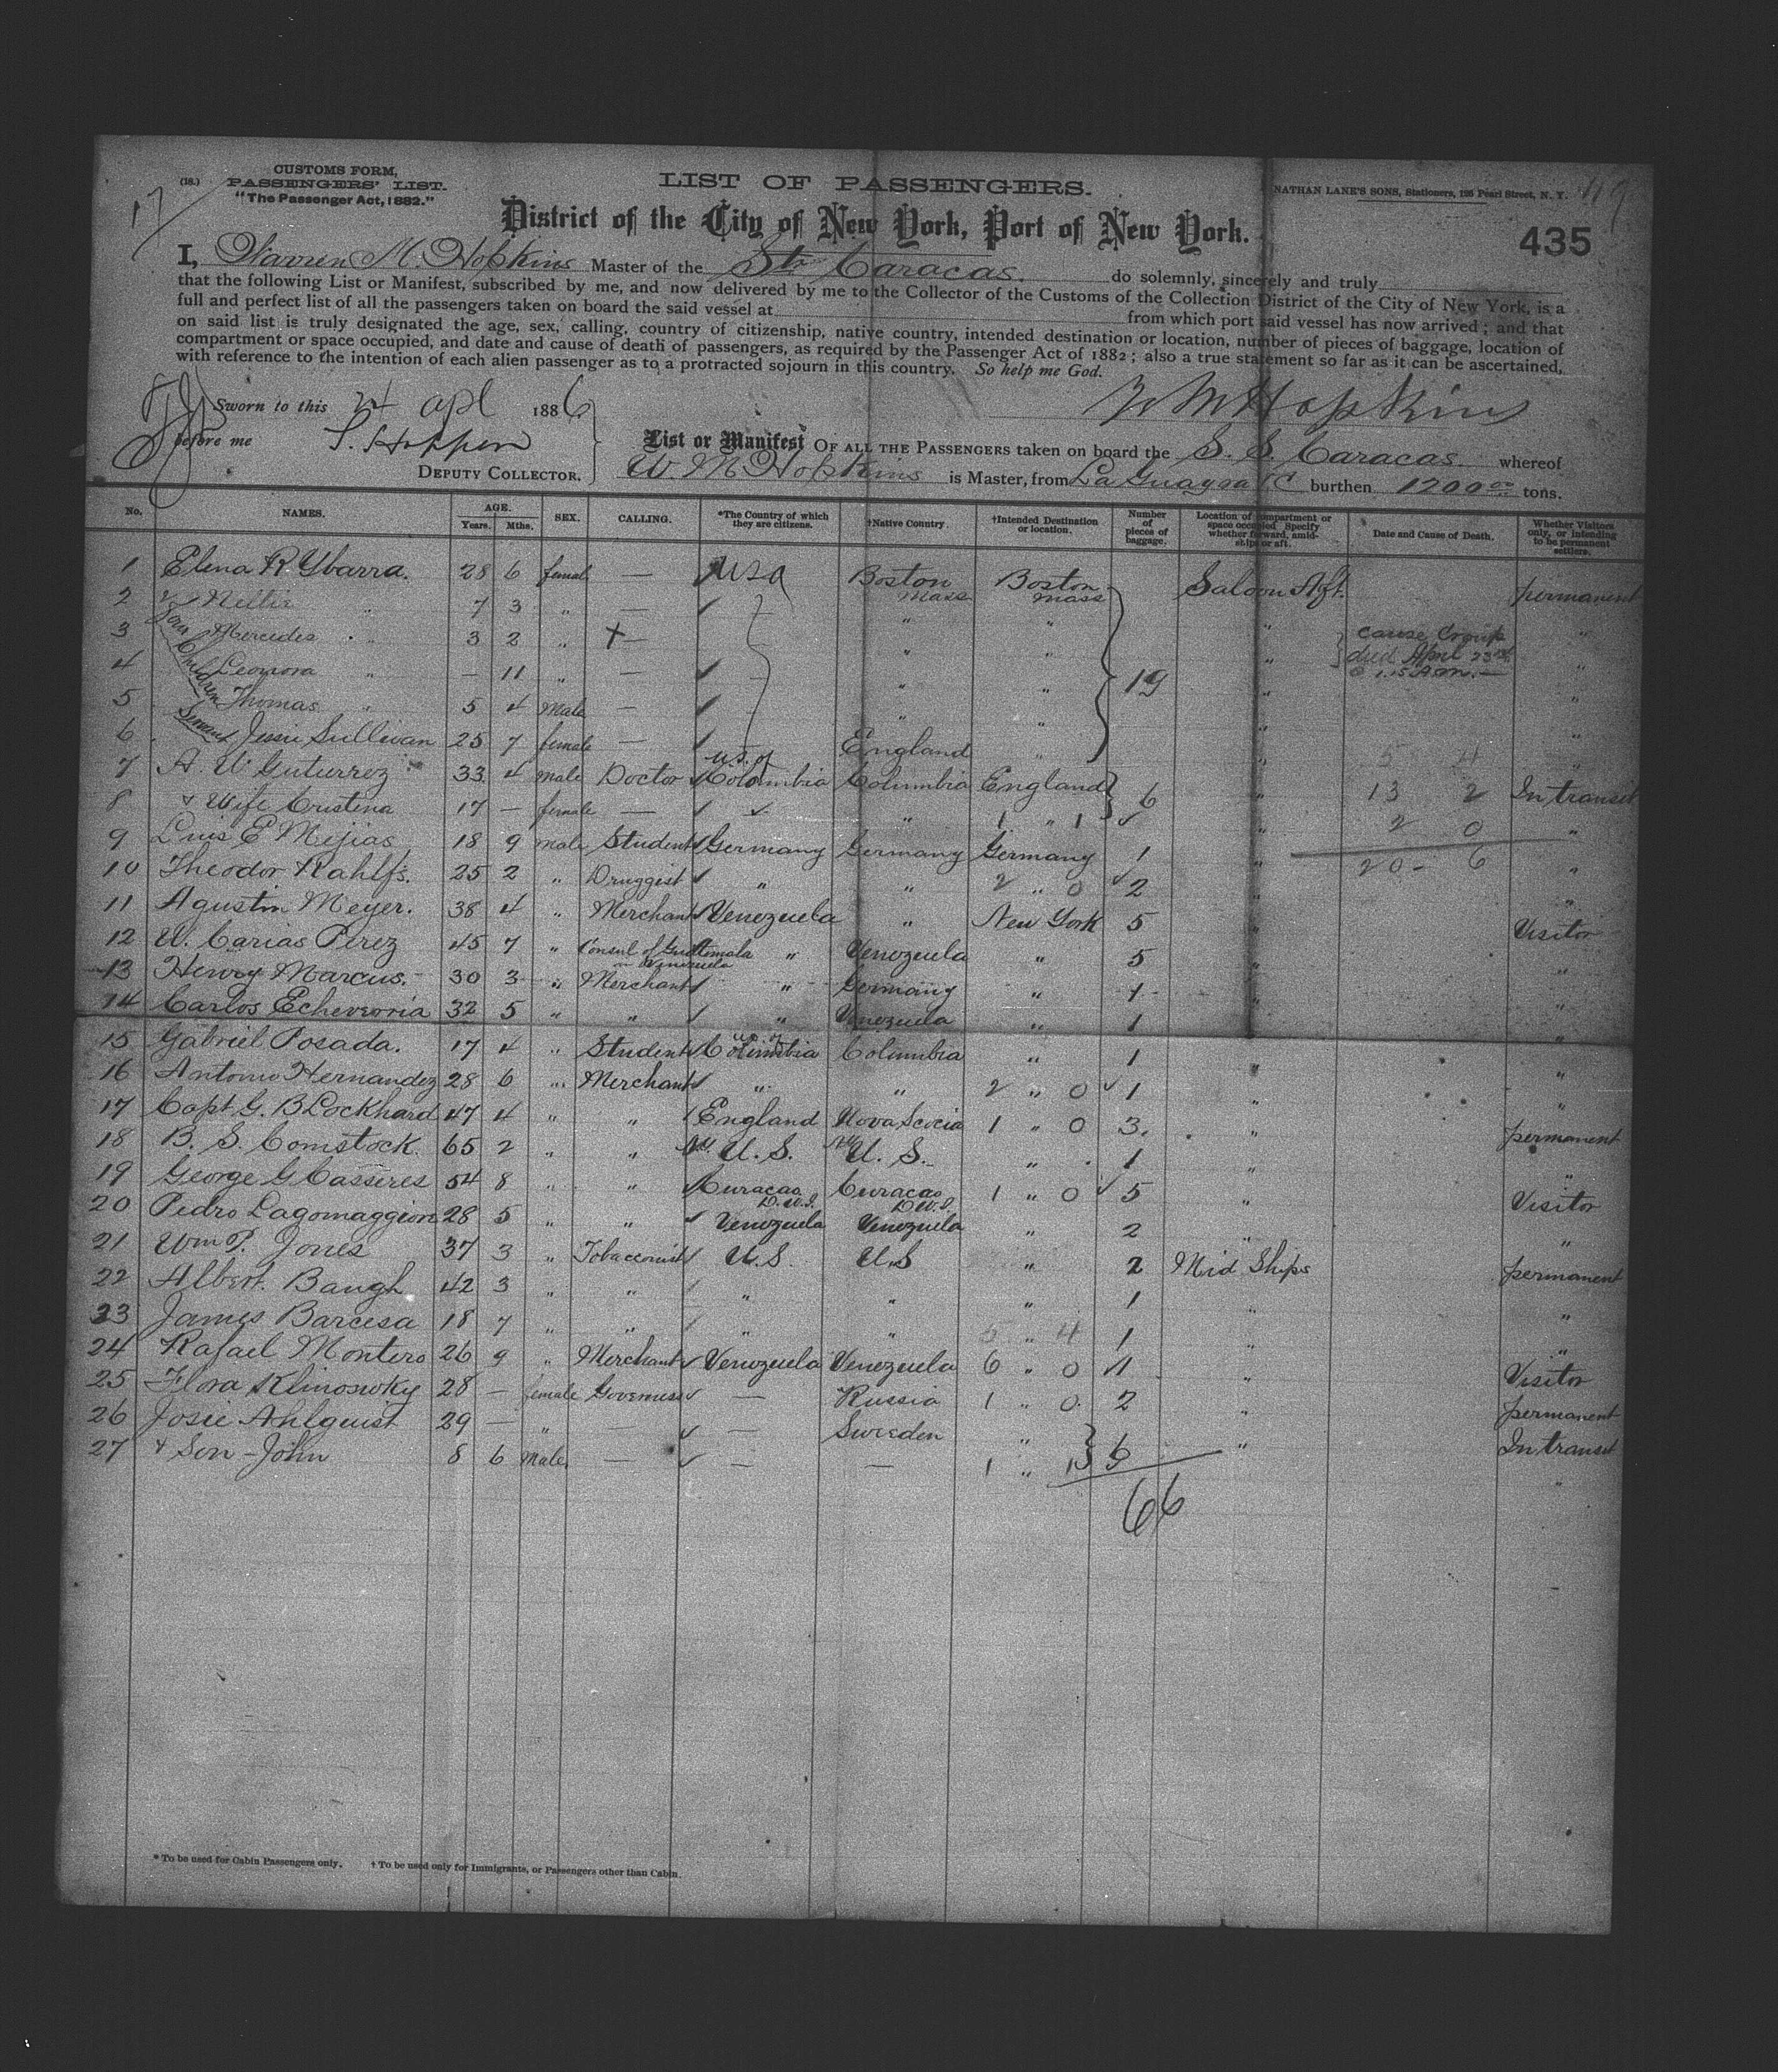 (18.) CUSTOMS FORM,
PASSENGERS' LIST.
"The Passenger Act, 1882."
LIST OF PASSENGERS.
NATHAN LANE'S SONS, Stationers, 125 Pearl Street, N. Y.
17
District of the City of New York, Port of New York.
435
I, Warren M. Hopkins Master of the Str Caracas. do solemnly, sincerely and truly
that the following List or Manifest, subscribed by me, and now delivered by me to the Collector of the Customs of the Collection District of the City of New York, is a
full and perfect list of all the passengers taken on board the said vessel at from which port said vessel has now arrived; and that
on said list is truly designated the age, sex, calling, country of citizenship, native country, intended destination or location, number of pieces of baggage, location of
compartment or space occupied, and date and cause of death of passengers, as required by the Passenger Act of 1882; also a true statement so far as it can be ascertained,
with reference to the intention of each alien passenger as to a protracted sojourn in this country. So help me God.
Sworn to this 24 apl 1886
W M Hopkins
before me
DEPUTY COLLECTOR.
List or Manifest OF ALL THE PASSENGERS taken on board the S. S. Caracas whereof
W. M. Hopkins is Master, from La Guayra burthen 1200 00 tons.
No. NAMES. AGE. Years. Mths. SEX. CALLING. *The Country of which they are citizens. †Native Country. †Intended Destination or location. Number of pieces of baggage. Location of compartment or space occupied. Specify whether forward, amidships or aft. Date and Cause of Death. Whether Visitors only, or intending to be permanent settlers.
1 Elena R Ybarra. 28 6 femal — USA Boston Mass Boston Mass Saloon Aft. permanent
2 Nellie " 7 3 " — " " " "
3 Mercedes " 3 2 " + — " " " cause Croup died April 23rd "
4 Leonora " — 11 " — " " 19 " "
5 Thomas " 5 4 Male — " " " "
Children
6 Servant Jessie Sullivan 25 7 female — England " " "
7 A. W Guturrez 33 4 male Doctor U.S. of Colombia Columbia England 6 " 13 2 In transit
8 & Wife Cristina 17 — female — " 1 " 1 " 2 0 "
9 Luis E Mejias 18 9 male Student Germany Germany Germany 1 " 20 - 6 "
10 Theodor Rahlfs. 25 2 " Druggist " " 2 " 0 2 " "
11 Agustin Meyer. 38 4 " Merchant Venezuela " New York 5 " Visitor
12 W. Carias Perez 45 7 " Consul of Guatemala in Venezuela " Venezuela " 5 " "
13 Henry Marcus. 30 3 " Merchant " Germany " 1 " "
14 Carlos Echeverria 32 5 " " " Venezuela " 1 "
15 Gabriel Posada. 17 4 " Student Columbia Columbia " 1 " "
16 Antonio Hernandez 28 6 " Merchant " " 2 " 0 1 " "
17 Capt G. B Lockhard 47 4 " " England Nova Scocia 1 " 0 3. " permanent
18 B. S. Comstock. 65 2 " " U. S. U. S. " 1 " "
19 George G Casseres 54 8 " " Curacao D.W.I. Curacao D.W.I. 1 " 0 5 " Visitor
20 Pedro Lagomaggion 28 5 " " Venezuela Venezuela " 2 " "
21 Wm P. Jones 37 3 " Tobacconist U.S. U.S " 2 Mid Ships permanent
22 Albert. Baugh 42 3 " " " " " 1 " "
23 James Barcesa 18 7 " " " " 5 " 4 1 " "
24 Rafael Montero 26 9 " Merchant Venezuela Venezuela 6 " 0 1 " Visitor
25 Flora Klinoswky 28 — female Governess — Russia 1 " 0 2 " permanent
26 Josie Ahlquist 29 — " — — Sweden " 6 " In transit
27 & Son - John 8 6 Male — — — 1 " "
66
* To be used for Cabin Passengers only. † To be used only for Immigrants, or Passengers other than Cabin.